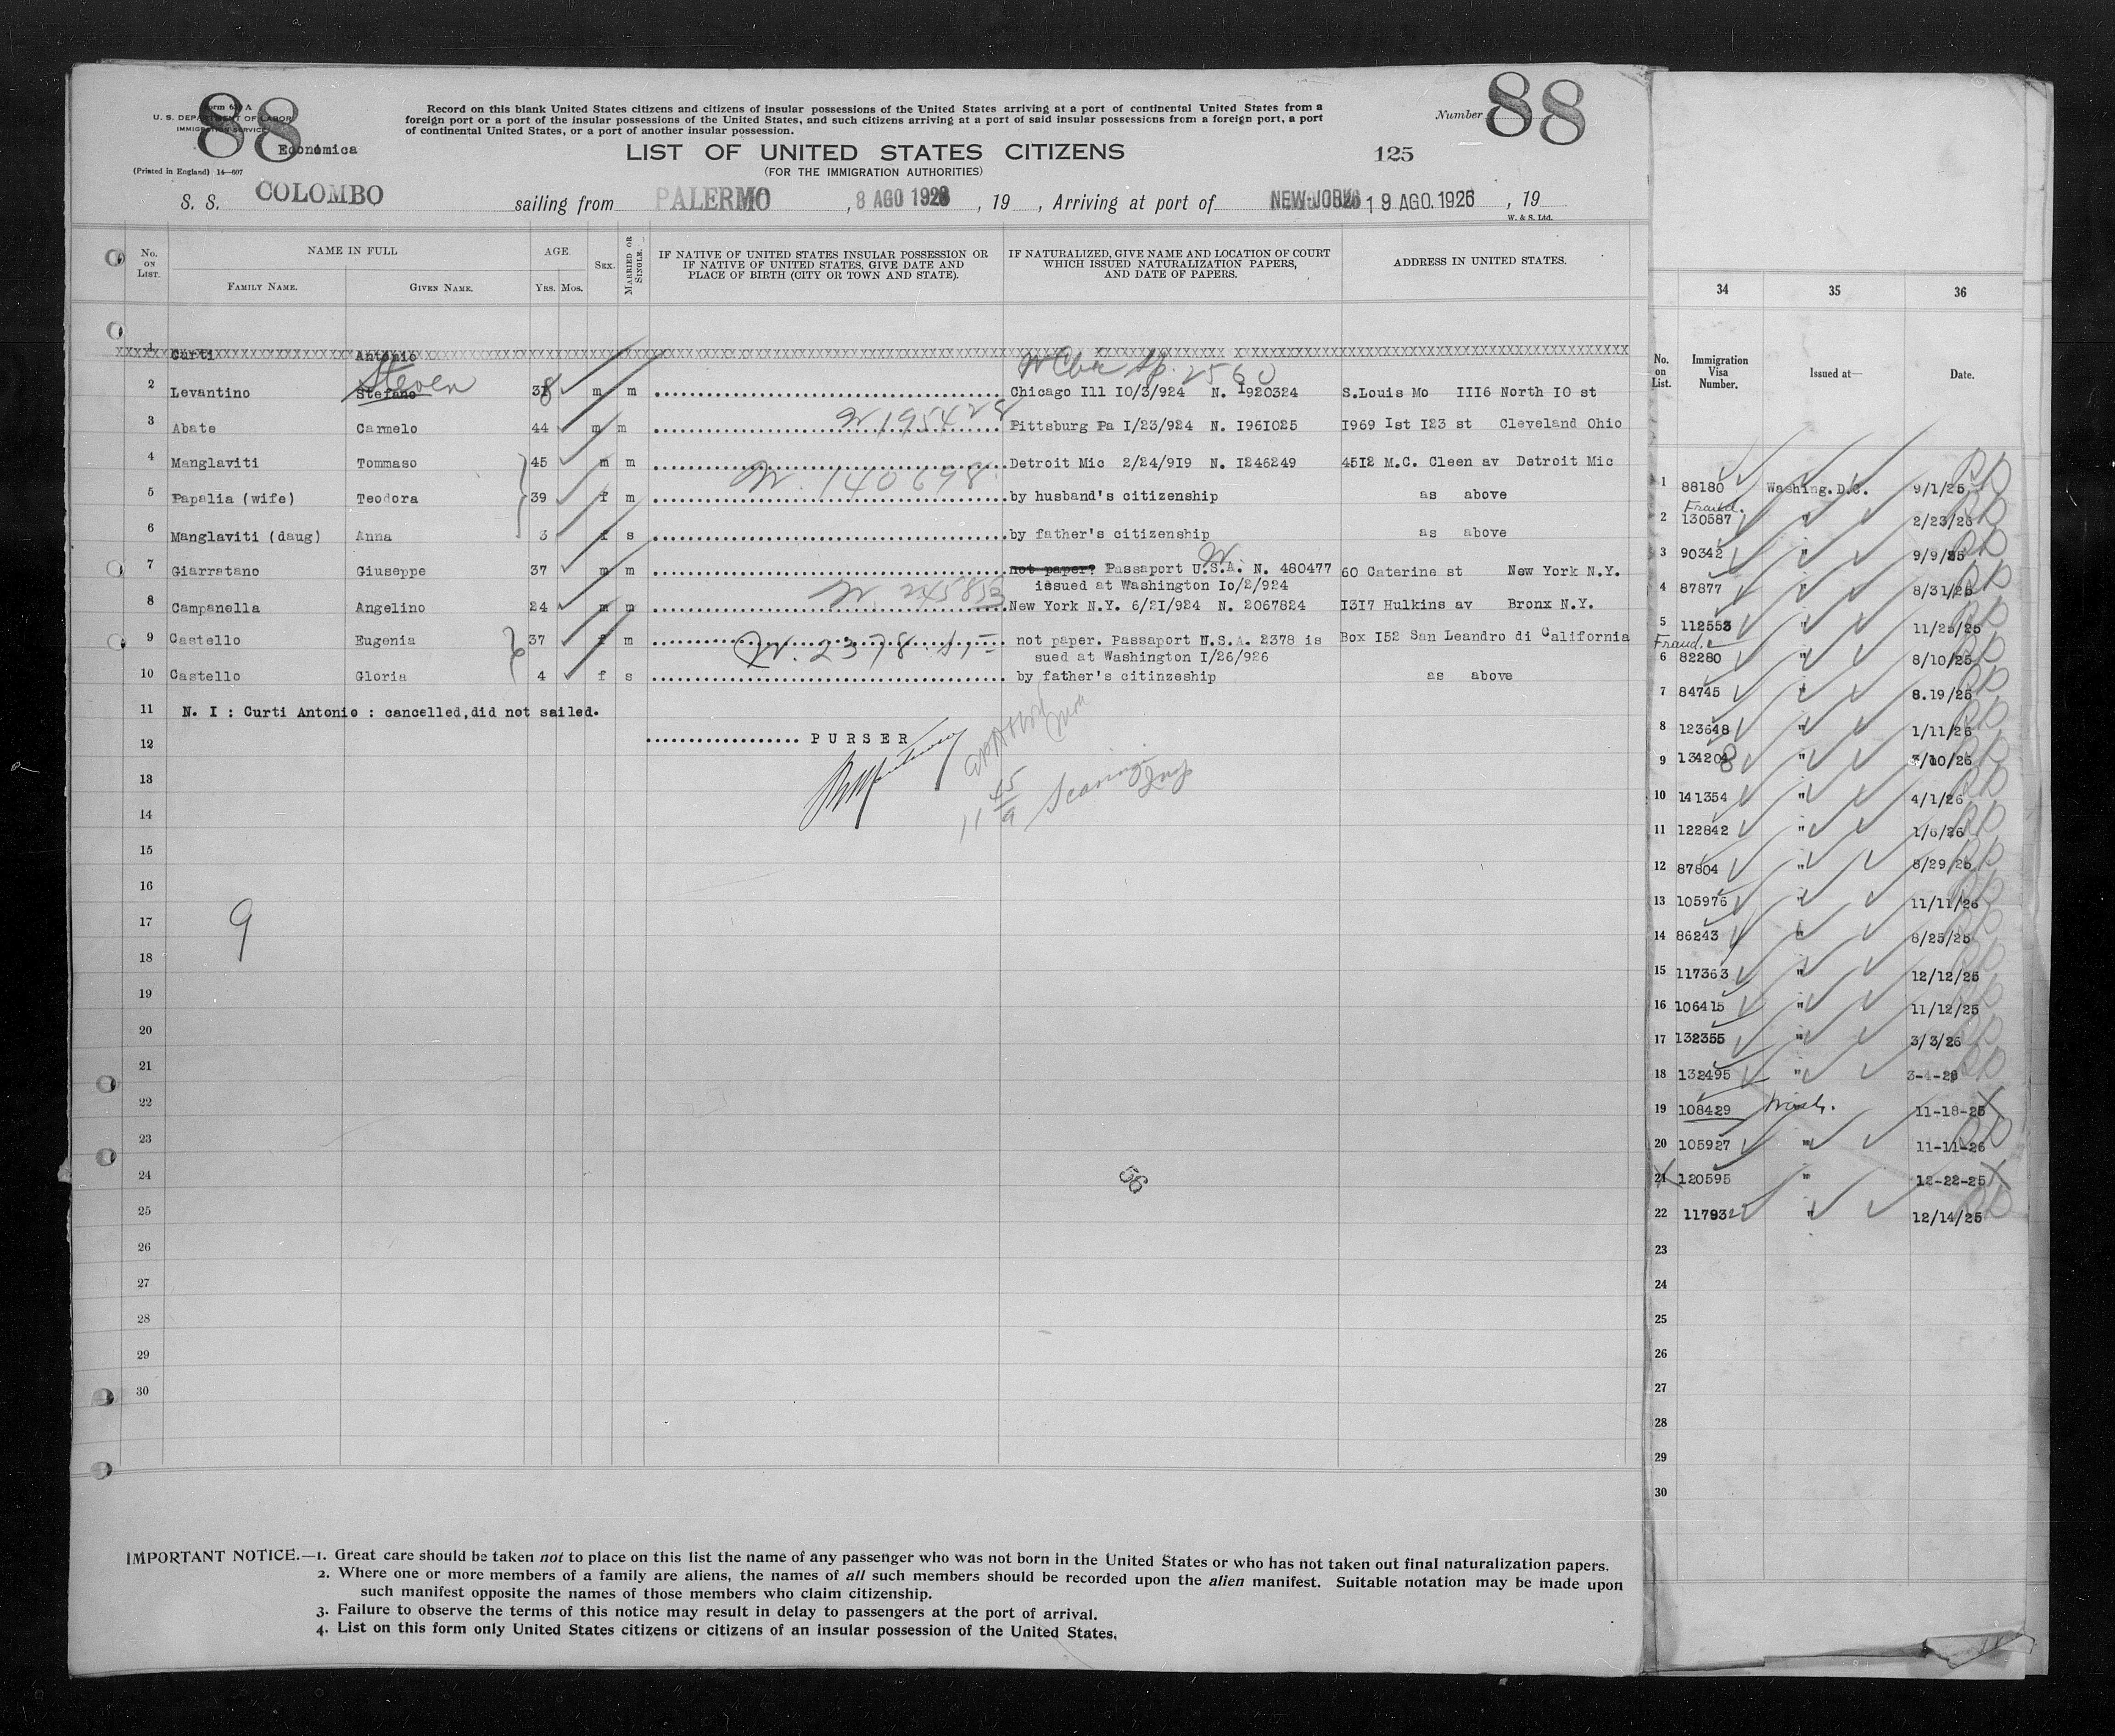 88
88
Form 630 A
U. S. DEPARTMENT OF LABOR
IMMIGRATION SERVICE
Económica
(Printed in England) 14—607
Record on this blank United States citizens and citizens of insular possessions of the United States arriving at a port of continental United States from a
foreign port or a port of the insular possessions of the United States, and such citizens arriving at a port of said insular possessions from a foreign port, a port
of continental United States, or a port of another insular possession.
Number
LIST OF UNITED STATES CITIZENS
125
(FOR THE IMMIGRATION AUTHORITIES)
S. S. COLOMBO sailing from PALERMO, 8 AGO 1926, 19 , Arriving at port of NEW-JORK 19 AGO. 1926, 19
W. & S. Ltd.
No. ON LIST.
NAME IN FULL
FAMILY NAME.
GIVEN NAME.
AGE
YRS. MOS.
SEX.
MARRIED OR SINGLE.
IF NATIVE OF UNITED STATES INSULAR POSSESSION OR
IF NATIVE OF UNITED STATES, GIVE DATE AND
PLACE OF BIRTH (CITY OR TOWN AND STATE).
IF NATURALIZED, GIVE NAME AND LOCATION OF COURT
WHICH ISSUED NATURALIZATION PAPERS,
AND DATE OF PAPERS.
ADDRESS IN UNITED STATES.
1 Curti Antonio
Steven
2560
2 Levantino Stefano 38 m m Chicago Ill IO/3/924 N. 1920324 S.Louis Mo III6 North IO st
3 Abate Carmelo 44 m m Pittsburg Pa I/23/924 N. I96I025 I969 Ist I23 st Cleveland Ohio
4 Manglaviti Tommaso 45 m m Detroit Mic 2/24/919 N. I246249 45I2 M.C. Cleen av Detroit Mic
5 Papalia (wife) Teodora 39 f m by husband's citizenship as above
6 Manglaviti (daug) Anna 3 f s by father's citizenship as above
7 Giarratano Giuseppe 37 m m not paper? Passaport U.S.A. N. 480477 60 Caterine st New York N.Y.
issued at Washington Io/2/924
8 Campanella Angelino 24 m m New York N.Y. 6/21/924 N. 2067824 I3I7 Hulkins av Bronx N.Y.
9 Castello Eugenia 37 f m not paper. Passaport N.S.A. 2378 is Box I52 San Leandro di California
sued at Washington I/26/926
10 Castello Gloria 4 f s by father's citinzeship as above
11 N. I : Curti Antonio : cancelled,did not sailed.
12 PURSER
13
14
15
16
17
18
19
20
21
22
23
24
25
26
27
28
29
30
9
56
34 35 36
No. on List.
Immigration Visa Number.
Issued at—
Date.
1 88180 Washing.D.C. 9/1/25
Fraud.
2 130587 " 2/23/26
3 90342 " 9/9/25
4 87877 " 8/31/25
5 112553 " 11/25/25
Fraud.
6 82280 " 8/10/25
7 84745 " 8.19/25
8 123648 " 1/11/26
9 134208 " 3/10/26
10 141354 " 4/1/26
11 122842 " 1/6/26
12 87804 " 8/29/25
13 105976 " 11/11/26
14 86243 " 8/25/25
15 117363 " 12/12/25
16 106415 " 11/12/25
17 132355 " 3/3/26
18 132495 " 3-4-26
19 108429 Wash. 11-18-25
20 105927 " 11-11-26
21 120595 " 12-22-25
22 117932 " 12/14/25
23
24
25
26
27
28
29
30
IMPORTANT NOTICE.—1. Great care should be taken not to place on this list the name of any passenger who was not born in the United States or who has not taken out final naturalization papers.
2. Where one or more members of a family are aliens, the names of all such members should be recorded upon the alien manifest. Suitable notation may be made upon
such manifest opposite the names of those members who claim citizenship.
3. Failure to observe the terms of this notice may result in delay to passengers at the port of arrival.
4. List on this form only United States citizens or citizens of an insular possession of the United States.